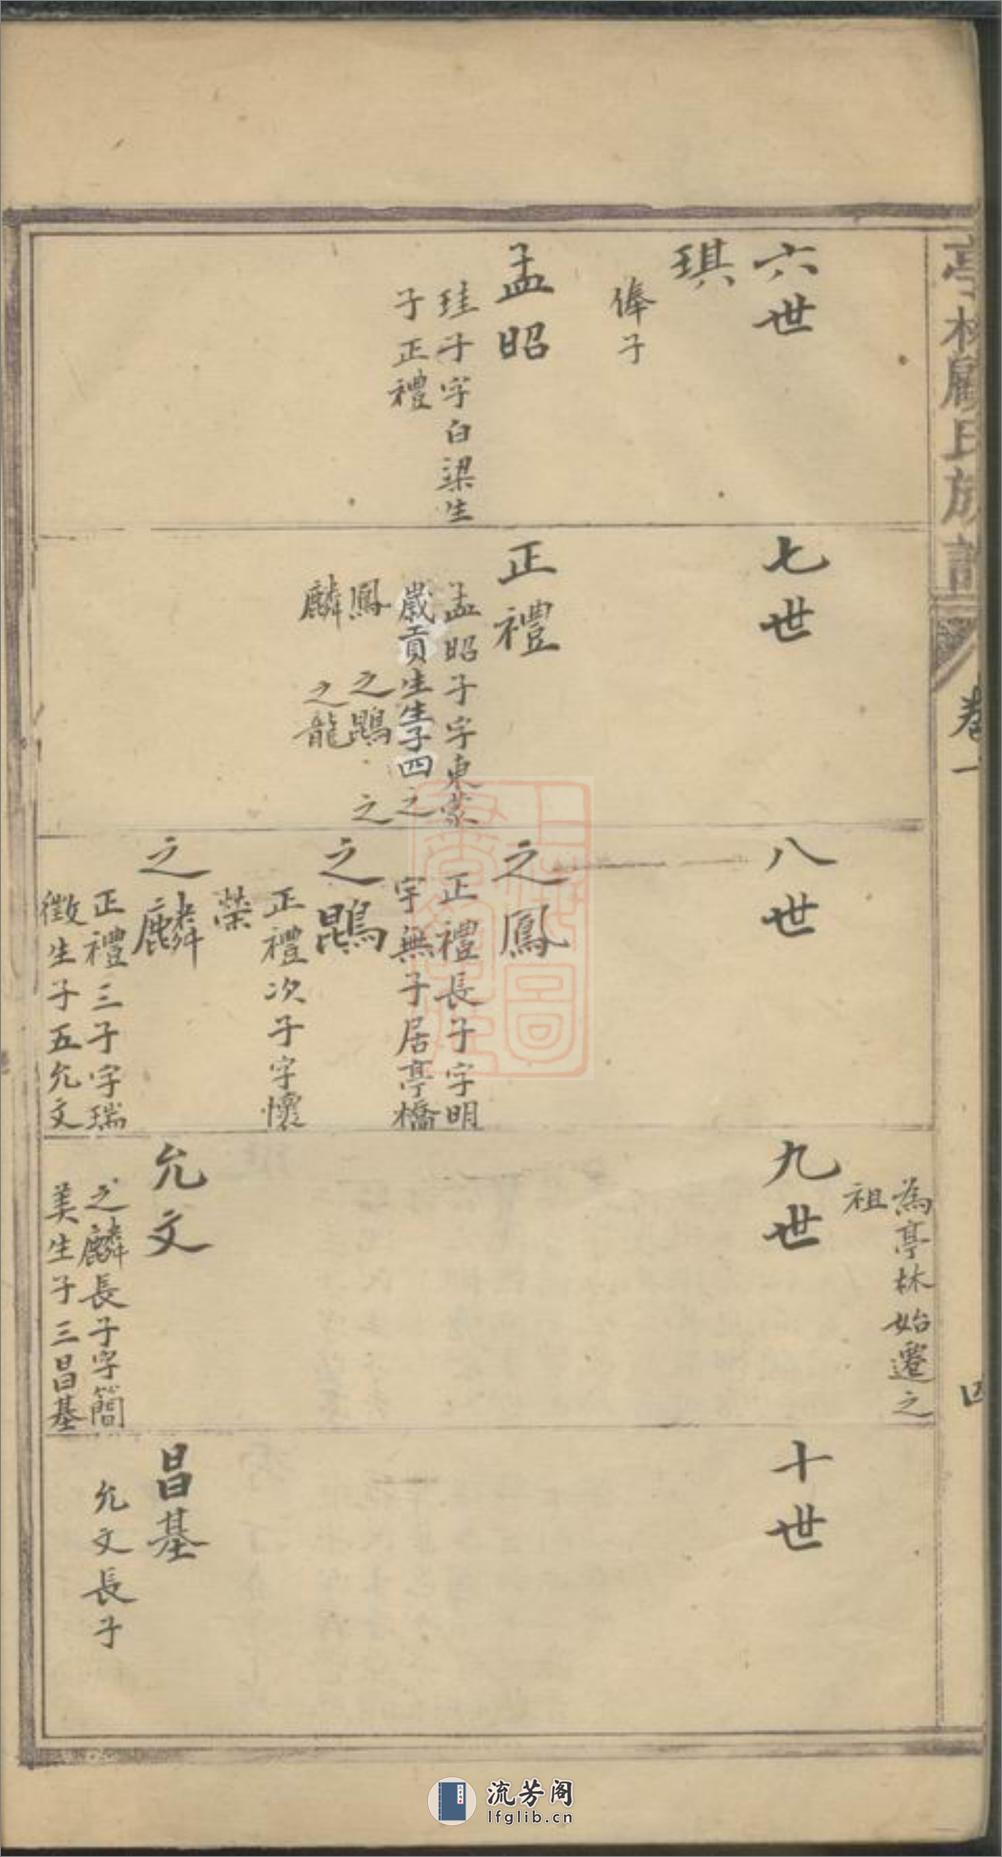 亭林顧氏族譜
卷一
四
六世
琪
俸子
孟昭
珪子字白梁生
子正禮
七世
正禮
孟昭子字東蒙
歲貢生生子四之
鳳 之鵾 之
麟 之龍
八世
之鳳
正禮長子字明
宇無子居亭橋
之鵾
正禮次子字懷
榮
之麟
正禮三子字瑞
徵生子五允文
為亭林始遷之
祖
九世
允文
之麟長子字簡
美生子三昌基
十世
昌基
允文長子
流芳阁
lfglib.cn